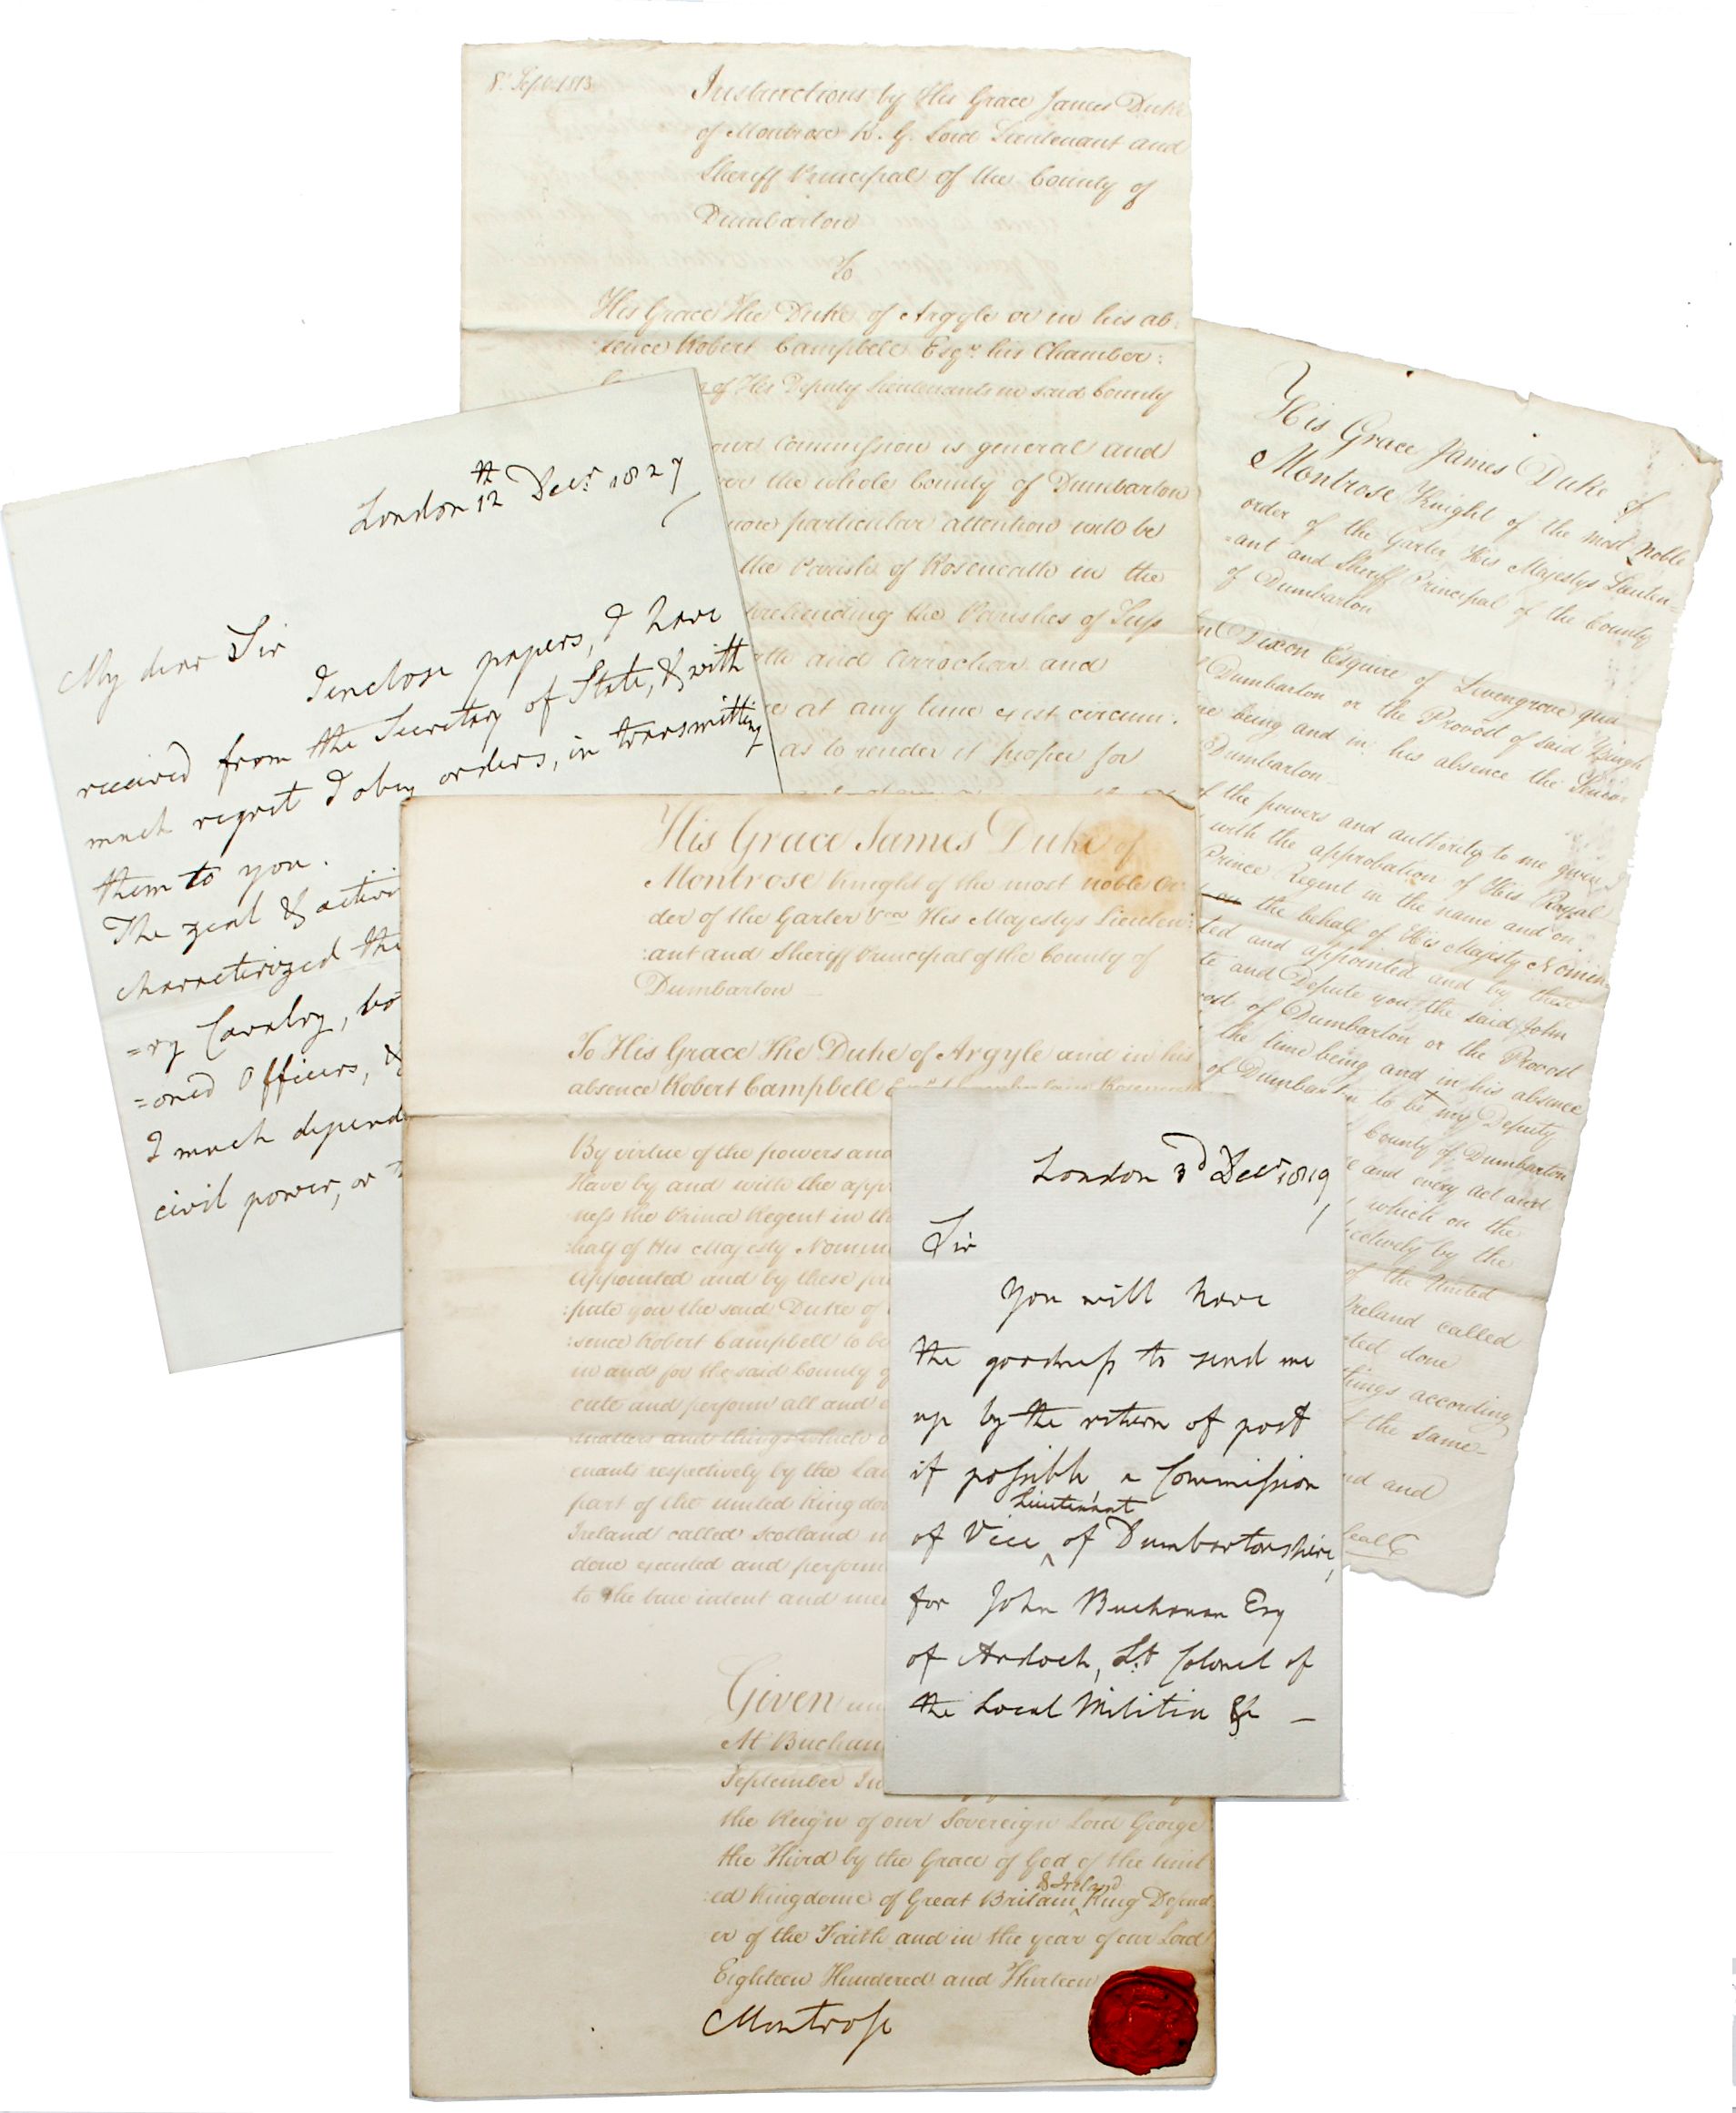 8th Sept 1813
Instructions by His Grace James Duke
of Montrose K. G. Lord Lieutenant and
Sheriff Principal of the County of
Dumbarton
To
His Grace The Duke of Argyle or in his ab
:sence Robert Campbell Esqr his Chamber:
of His Deputy Lieutenants in said County
Commission is general and
the whole County of Dumbarton
more particular attention will be
the Parish of Rosneath in the
the Parishes of Luss
and Arrochar and
at any time exist circum:
as to render it proper for
London 12th Decr 1827
My dear Sir
I enclose papers, I have
received from the Secretary of State, & with
much regret I obey orders, in transmitting
them to you.
The zeal & activi
characterized the
=ry Cavalry, bo
=oned Officers, &
I much depend
civil power, or
His Grace James Duke of
Montrose Knight of the most noble
order of the Garter His Majestys Lieuten=
=ant and Sheriff Principal of the County
of Dumbarton
Dixon Esquire of Levengrove
Dumbarton or the Provost of said Burgh
being and in his absence the Senior
Dumbarton
the powers and authority to me given
with the approbation of His Royal
Prince Regent in the name and on
on the behalf of His Majesty Nomin
ted and appointed and by these
and Depute you the said John
of Dumbarton or the Provost
the time being and in his absence
of Dumbarton to be my Deputy
County of Dumbarton
and every act and
which on the
by the
of the United
Ireland called
done
things according
the same
and
His Grace James Duke of
Montrose Knight of the most noble Or
der of the Garter &ca His Majestys Lieuten:
:ant and Sheriff Principal of the County of
Dumbarton
To His Grace The Duke of Argyle and in his
absence Robert Campbell
By virtue of the powers and
Have by and with the app
ness the Prince Regent in th
:half of His Majesty Nomin
appointed and by these pre
:pute you the said Duke of
:sence Robert Campbell to be
in and for the said County
cute and perform all and
matters and things which
enants respectively by the La
part of the united Kingdo
Ireland called Scotland
done executed and perform
to the true intent and me
Given un
At Buchan
September In
the Reign of our Sovereign Lord George
the Third by the Grace of God of the Unit
:ed Kingdome of Great Britain & Ireland King Defend
er of the Faith and in the year of our Lord
Eighteen Hundered and Thirteen
Montrose
London 3d Decr 1819
Sir
You will have
the goodness to send me
up by the return of post
if possible, a Commission
of Vice Lieutenant of Dumbartonshire,
for John Buchanan Esq
of Ardoch, Lt Colonel of
the Local Militia &c —